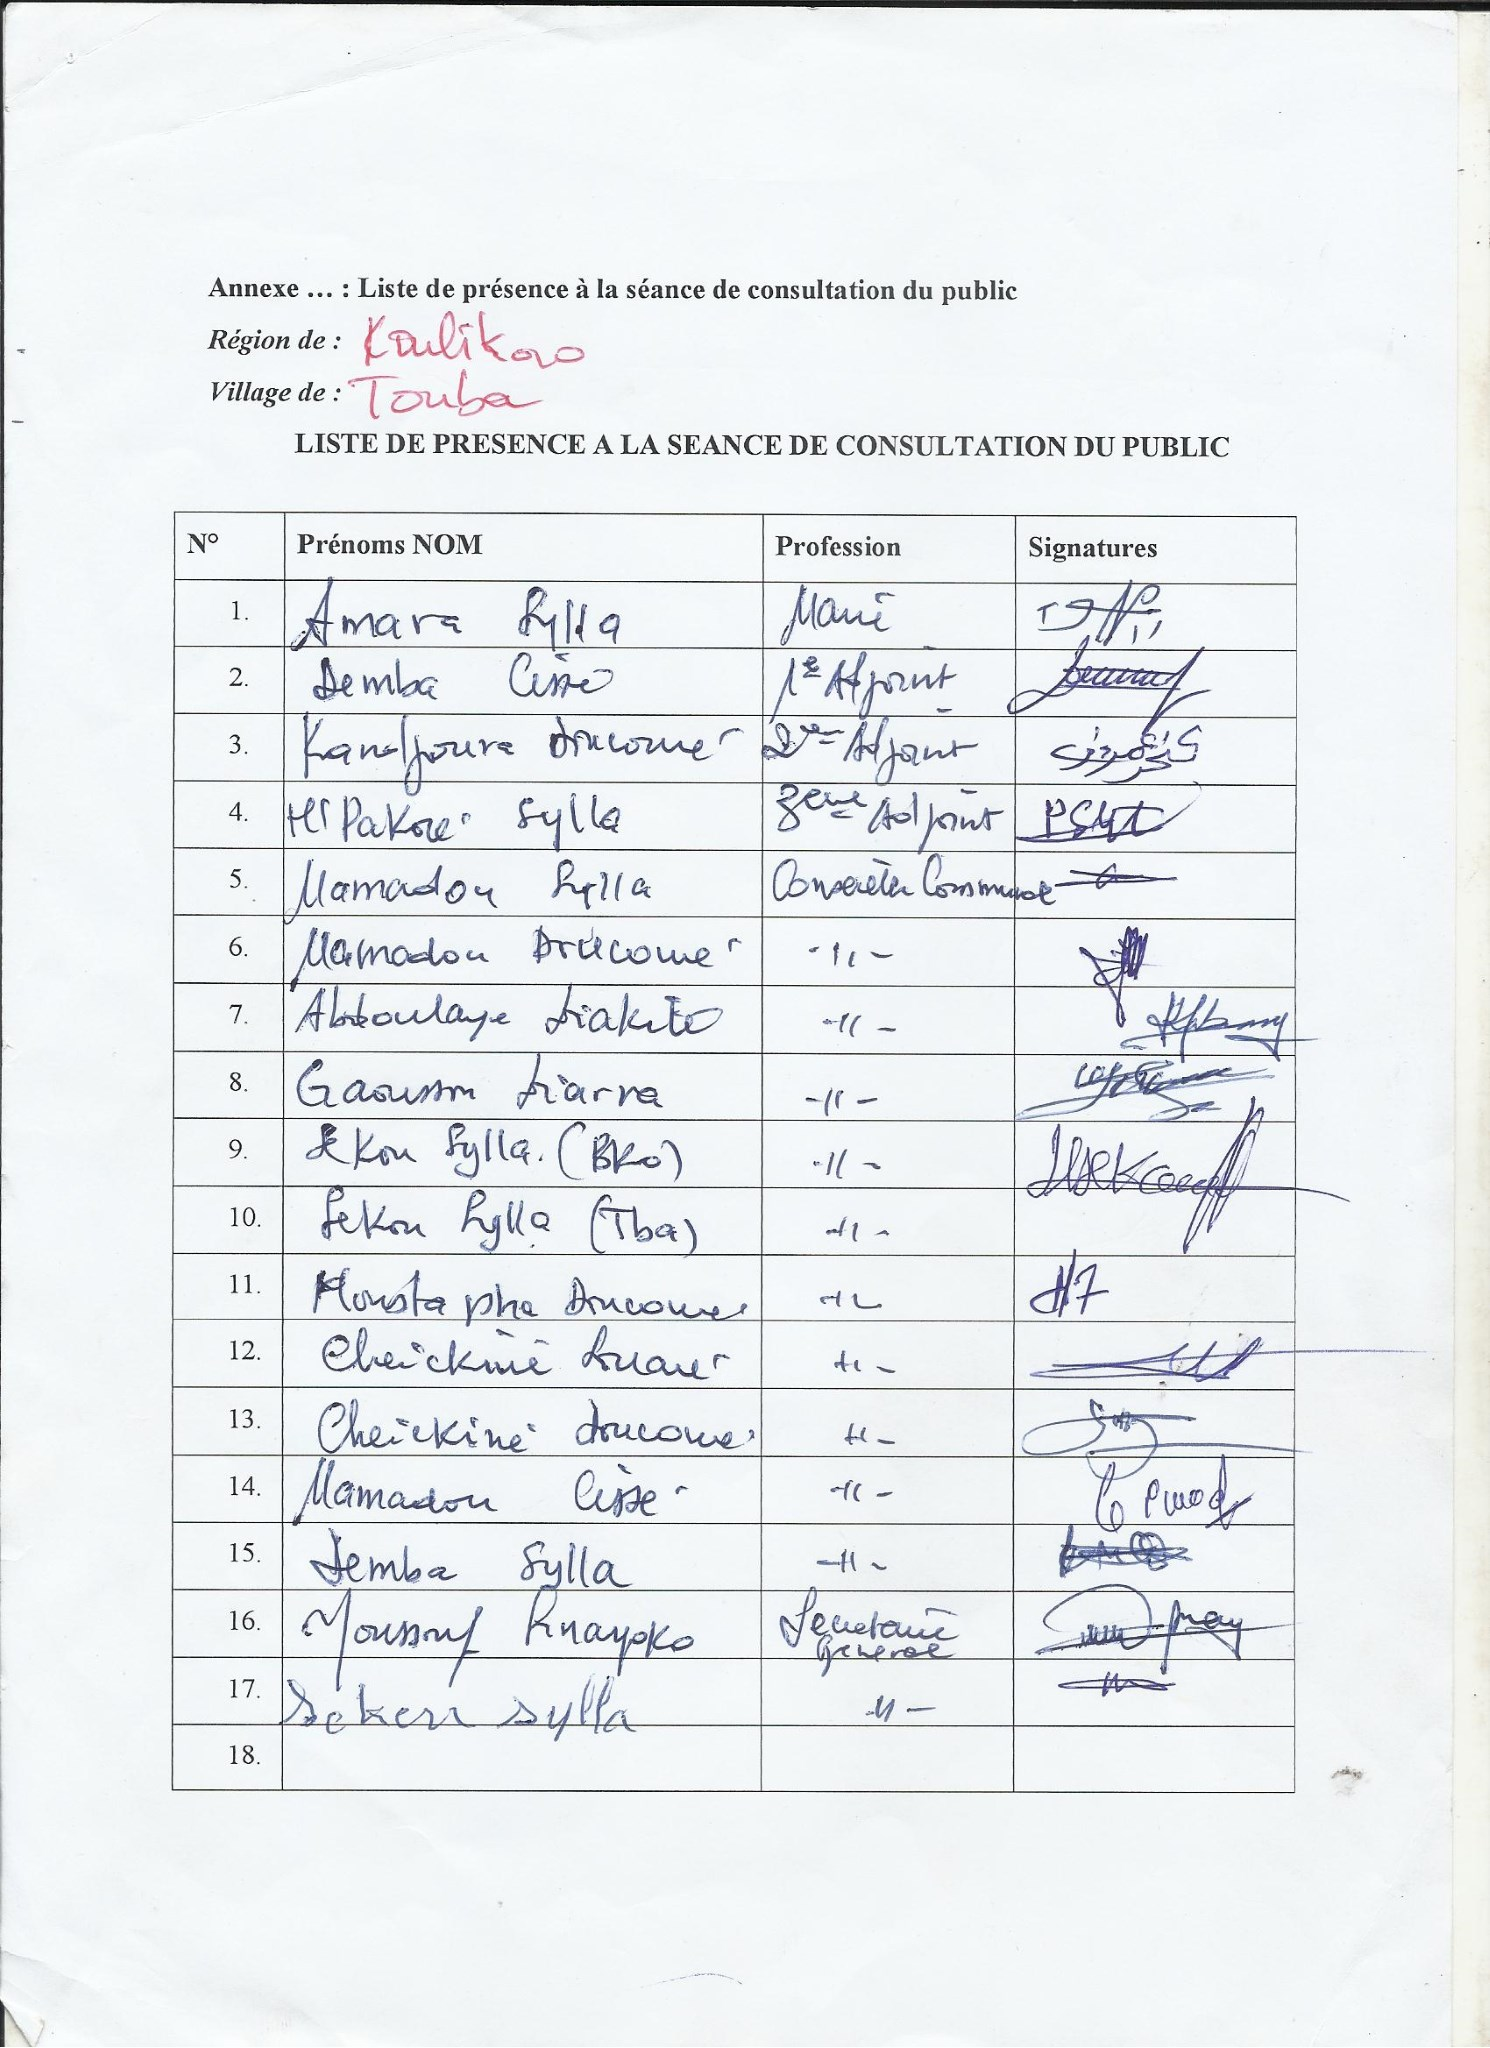 Annexe ... : Liste de présence à la séance de consultation du public
Région de : Koulikoro
Village de : Touba
LISTE DE PRESENCE A LA SEANCE DE CONSULTATION DU PUBLIC
N° Prénoms NOM Profession Signatures
1. Amara Sylla Maire
2. Demba Cissé 1e Adjoint
3. Kandjoura Doucouré 2ème Adjoint
4. Sylla 3eme Adjoint
5. Mamadou Sylla Conseiller Communal
6. Mamadou Doucouré -//-
7. Abdoulaye Diakité -//-
8. Gaoussou Diarra -//-
9. Sekou Sylla. (BKO) -//-
10. Sekou Sylla (Tba) -//-
11. Moustapha Doucouré -//-
12. Cheickiné -//-
13. Cheickiné Doucouré -//-
14. Mamadou Cissé -//-
15. Demba Sylla -//-
16. Youssouf Sinayoko Secretaire
General
17. Sekou Sylla -//-
18.